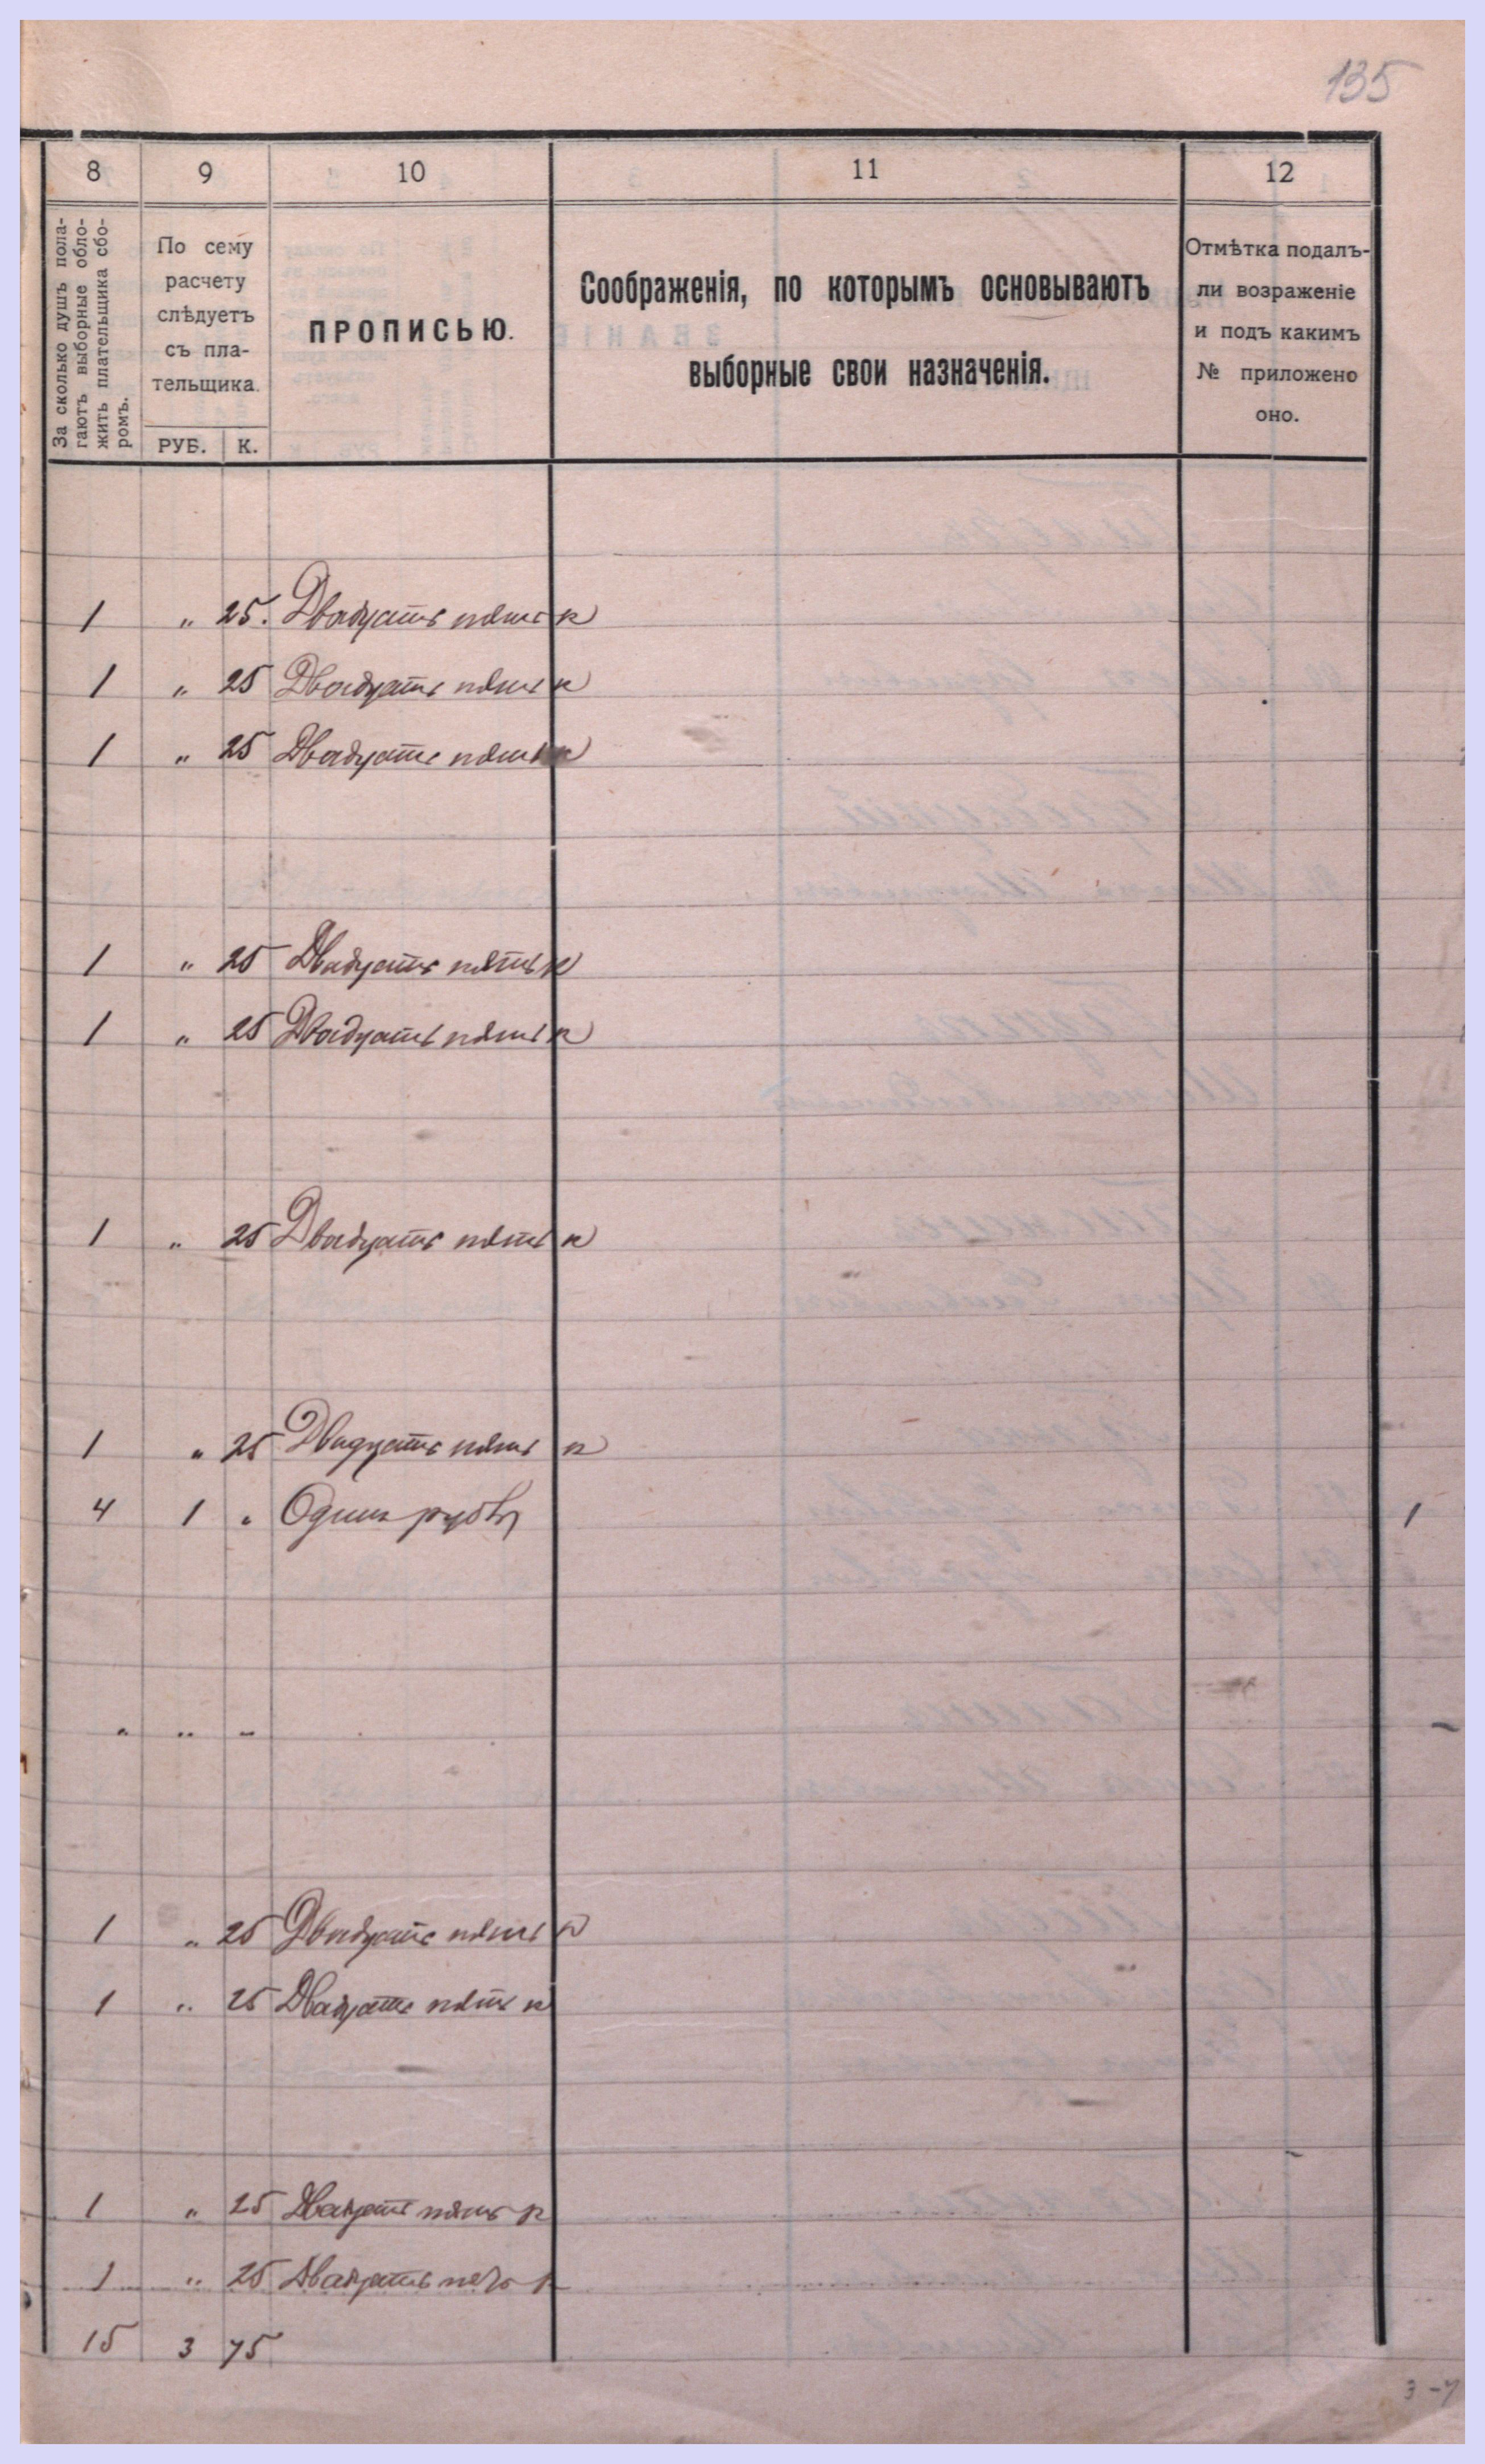 135
8 9 10 11 12
За сколько душъ пола-
гаютъ выборные обло-
жить плательщика сбо-
ромъ.
По сему
расчету
слѣдуетъ
съ пла-
тельщика.
РУБ. К.
ПРОПИСЬЮ.
Соображенія, по которымъ основываютъ
выборные свои назначенія.
Отмѣтка подалъ-
ли возраженіе
и подъ какимъ
№ приложено
оно.
1 " 25. Двадцать пять к
1 " 25 Двадцать пять к
1 " 25 Двадцать пять к
1 " 25 Двадцать пять к
1 " 25 Двадцать пять к
1 " 25 Двадцать пять к
1 " 25 Двадцать пять к
4 1 " Одинъ рубль 1
" " "
1 " 25 Двадцать пять к
1 " 25 Двадцать пять к
1 " 25 Двадцать пять к
1 " 25 Двадцать пять к
15 3 75